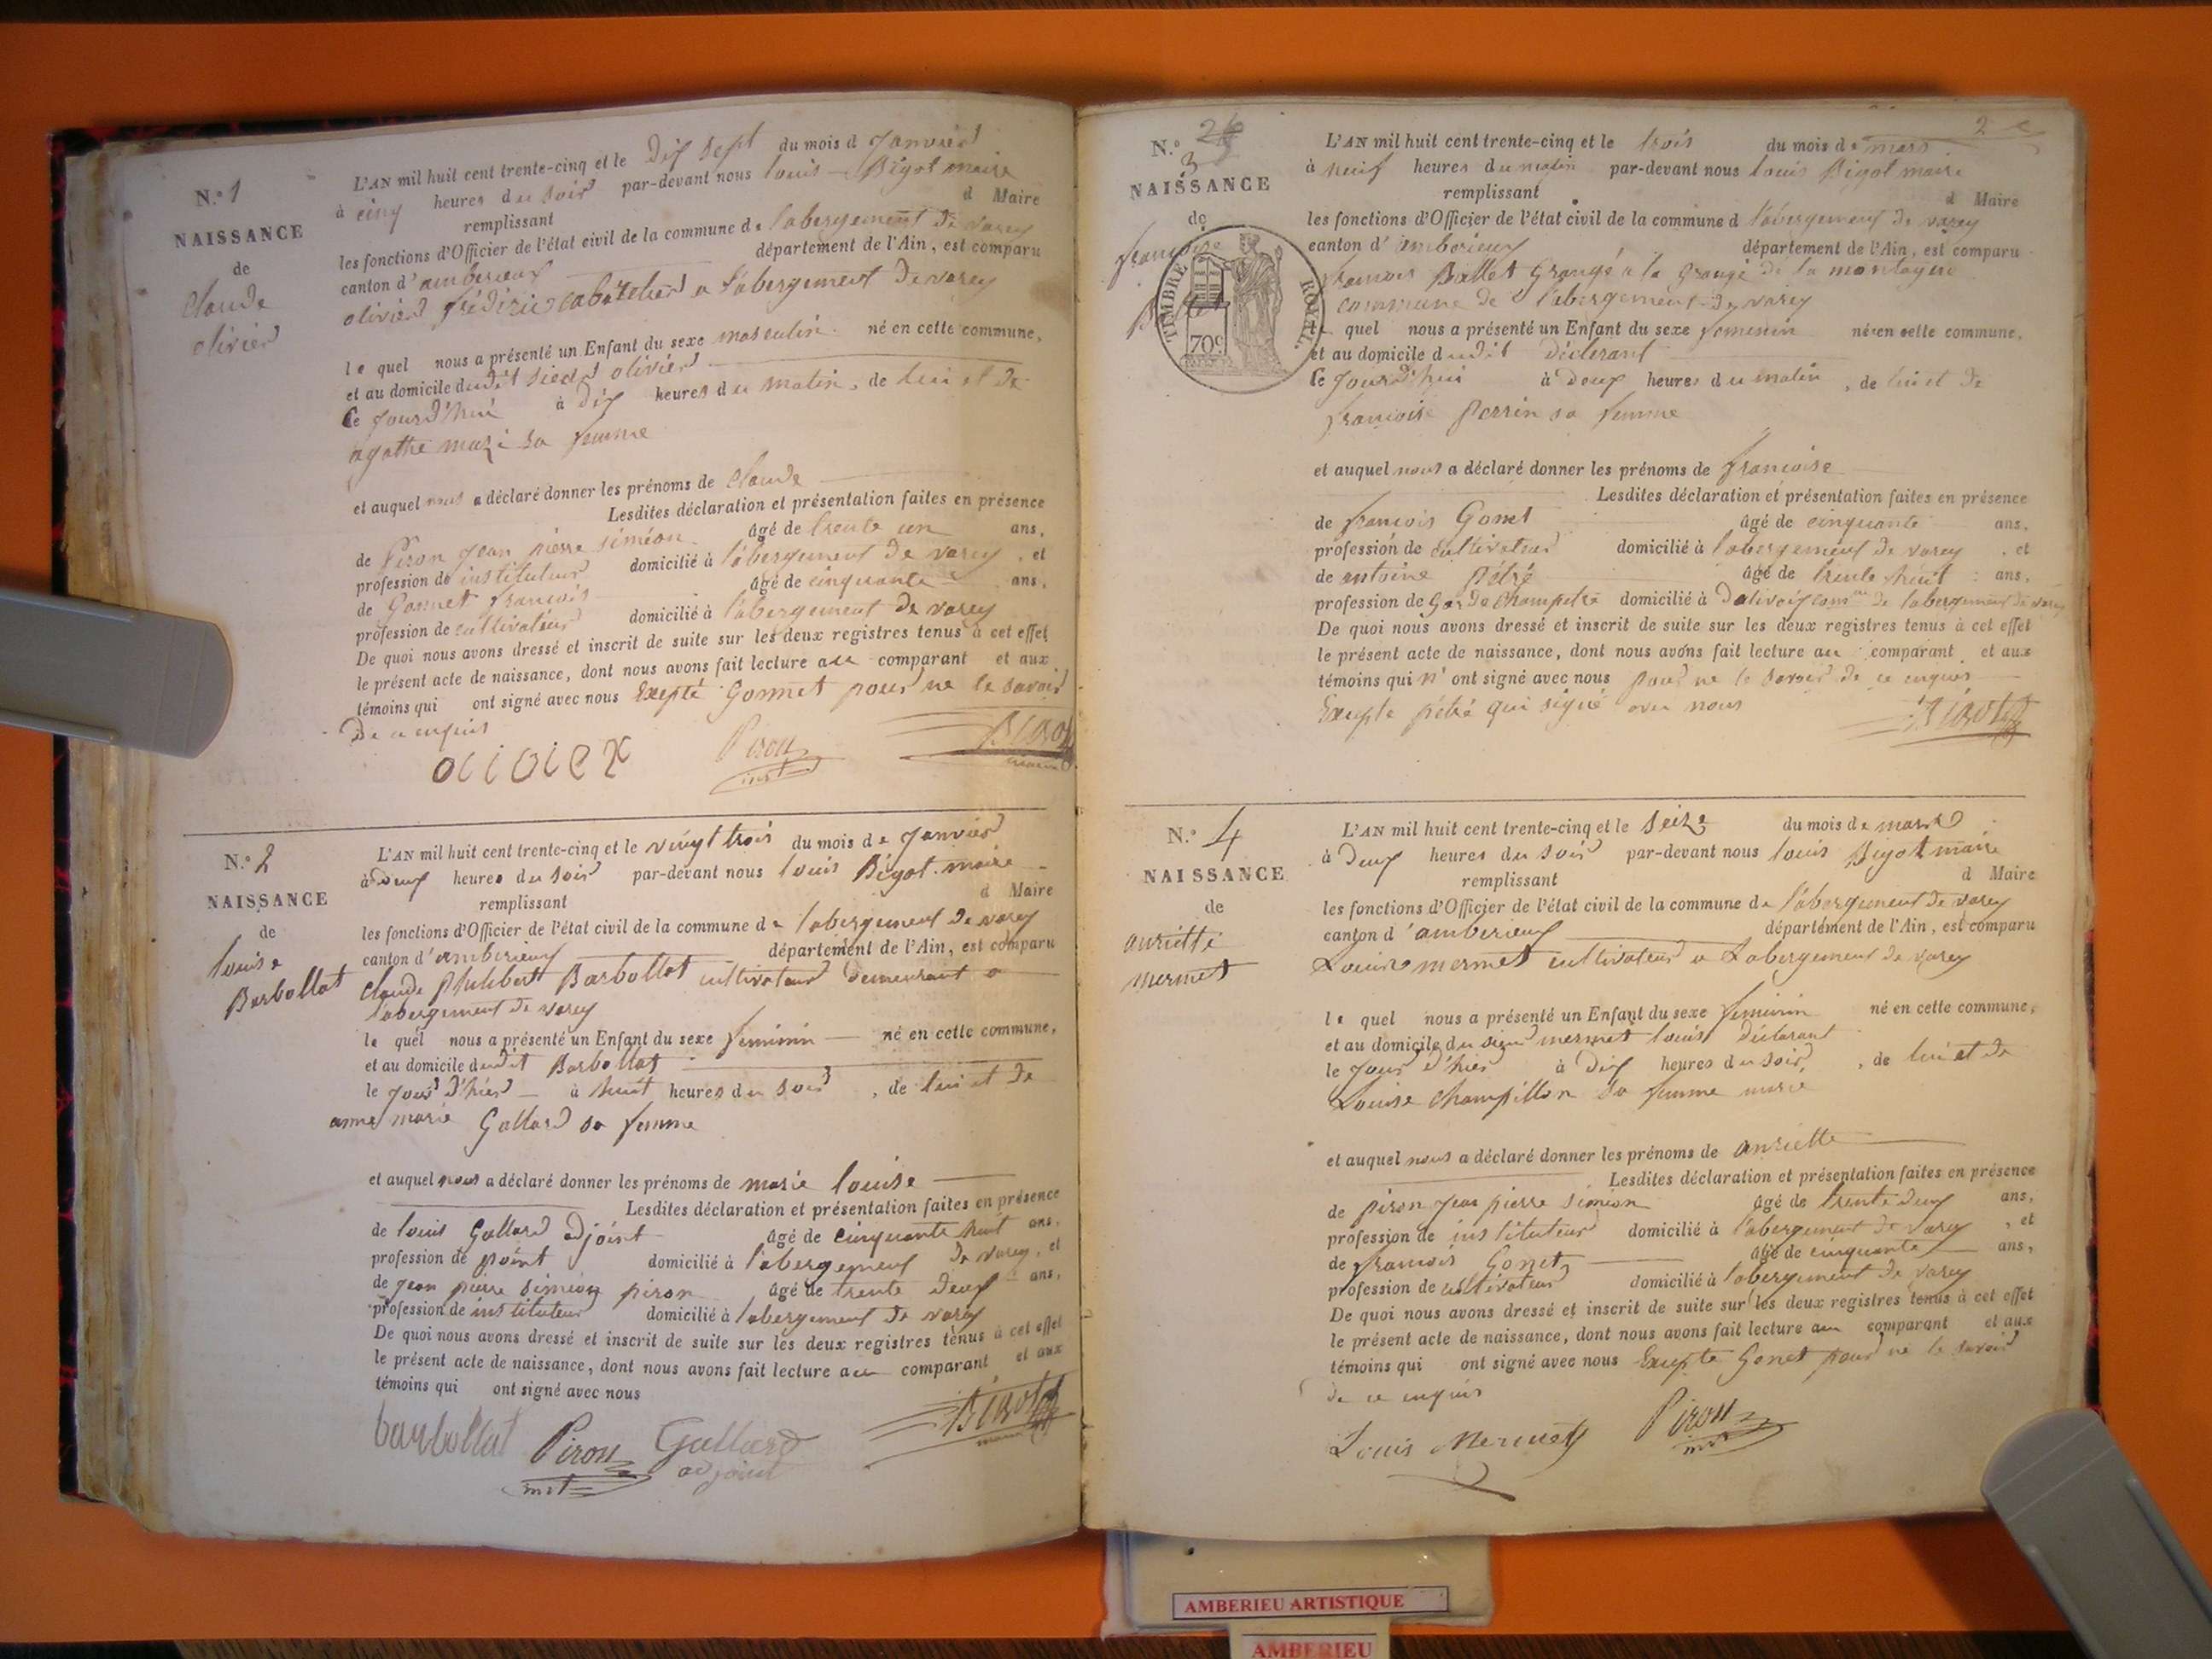 N.° 1
NAISSANCE
de
Claude
olivier
L'AN mil huit cent trente-cinq et le Dix sept du mois d Janvier
à cinq heures du soir par-devant nous louis Bigot maire
remplissant d Maire
les fonctions d'Officier de l'état civil de la commune de labergement de varey
canton d'amberieux département de l'Ain, est comparu
olivier frédéric a labergement de varey
le quel nous a présenté un Enfant du sexe masculin né en cette commune,
et au domicile dudit sieur olivier
Ce Jourd'hui à Dix heures du matin, de lui et de
agathe sa femme
et auquel nous a déclaré donner les prénoms de Claude
Lesdites déclaration et présentation faites en présence
de Piron Jean pierre siméon âgé de trente un ans,
profession de instituteur domicilié à labergement de varey, et
de Gonnet francois âgé de cinquante ans,
profession de cultivateur domicilié à labergement de varey
De quoi nous avons dressé et inscrit de suite sur les deux registres tenus à cet effet
le présent acte de naissance, dont nous avons fait lecture au comparant et aux
témoins qui ont signé avec nous Exepté Gonnet pour ne le savoir
De ce enquis
Piron
inst
BIGOT
maire
N.° 2
NAISSANCE
de
louise
Barbollat
L'AN mil huit cent trente-cinq et le vingt trois du mois de Janvier
à Deux heures du soir par-devant nous louis Bigot maire
remplissant d Maire
les fonctions d'Officier de l'état civil de la commune de labergement de varey
canton d'amberieux département de l'Ain, est comparu
Claude Philibert Barbollat cultivateur demeurant a
labergement de varey
le quel nous a présenté un Enfant du sexe feminin né en cette commune,
et au domicile dudit Barbollat
le Jour d'hier à huit heures du soir, de lui et de
anne marie Gallard sa femme
et auquel nous a déclaré donner les prénoms de marie louise
Lesdites déclaration et présentation faites en présence
de louis Gallard adjoint âgé de cinquante huit ans,
profession de point domicilié à labergement de varey, et
de Jean pierre siméon piron âgé de trente deux ans,
profession de instituteur domicilié à labergement de varey
De quoi nous avons dressé et inscrit de suite sur les deux registres tenus à cet effet
le présent acte de naissance, dont nous avons fait lecture au comparant et aux
témoins qui ont signé avec nous
barbollat Piron Gallard BIGOT
inst adjoint maire
2
N.° 3
NAISSANCE
de
francoise
TIMBRE ROYAL
70c
L'AN mil huit cent trente-cinq et le trois du mois de mars
à neuf heures du matin par-devant nous louis Bigot maire
remplissant d Maire
les fonctions d'Officier de l'état civil de la commune d labergement de varey
canton d'amberieux département de l'Ain, est comparu
francois Ballet Grangé a la Grange de la montagne
commune de labergement de varey
le quel nous a présenté un Enfant du sexe femenin né en cette commune,
et au domicile dudit déclarant
Ce Jourd'hui à Deux heures du matin, de lui et de
francoise perrin sa femme
et auquel nous a déclaré donner les prénoms de francoise
Lesdites déclaration et présentation faites en présence
de francois Gonet âgé de cinquante ans,
profession de cultivateur domicilié à labergement de varey, et
de antoine pétré âgé de trente huit ans,
profession de Garde Champetre domicilié à Dalivoix comne de labergement de varey
De quoi nous avons dressé et inscrit de suite sur les deux registres tenus à cet effet
le présent acte de naissance, dont nous avons fait lecture au comparant et aux
témoins qui n'ont signé avec nous pour ne le savoir de ce enquis
Exepte pétré qui signé avec nous
BIGOT
N.° 4
NAISSANCE
de
anriette
mermet
L'AN mil huit cent trente-cinq et le seize du mois de mars
à Deux heures du soir par-devant nous louis Bigot maire
remplissant d Maire
les fonctions d'Officier de l'état civil de la commune de labergement de varey
canton d'amberieux département de l'Ain, est comparu
Louis mermet cultivateur a Labergement de varey
le quel nous a présenté un Enfant du sexe feminin né en cette commune,
et au domicile du sieur mermet louis déclarant
le Jour d'hier à Dix heures du soir, de lui et de
Louise Champillon sa femme
et auquel nous a déclaré donner les prénoms de anriette
Lesdites déclaration et présentation faites en présence
de piron jean pierre siméon âgé de trente deux ans,
profession de instituteur domicilié à labergement de varey, et
de francois Gonet âgé de cinquante ans,
profession de cultivateur domicilié à labergement de varey
De quoi nous avons dressé et inscrit de suite sur les deux registres tenus à cet effet
le présent acte de naissance, dont nous avons fait lecture au comparant et aux
témoins qui ont signé avec nous Exepte Gonet pour ne le savoir
de ce enquis
Louis Mermet Piron
inst
AMBERIEU ARTISTIQUE
AMBERIEU